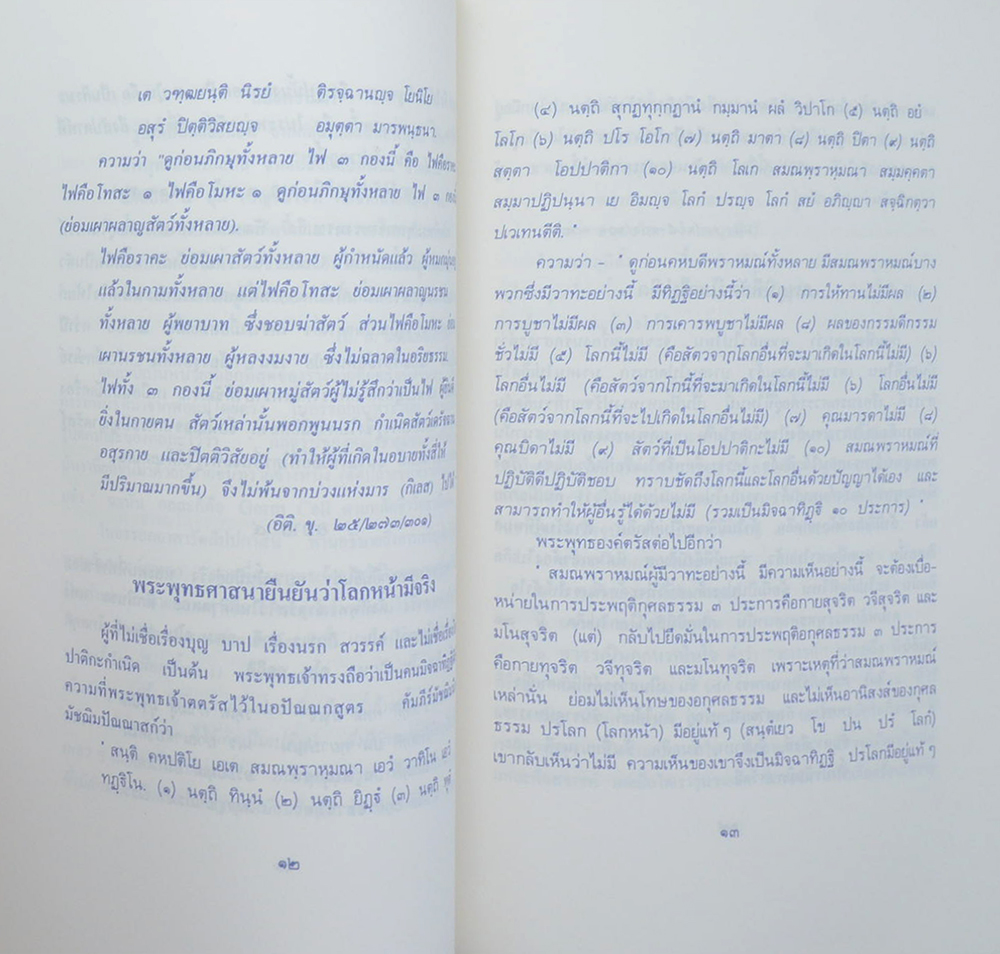 เต วฑฺฒยนฺติ นิรยํ ติรจฺฉานญฺจ โยนิโย
อสุรํ ปิตฺติวิสยญฺจ อมุตฺตา มารพนฺธนา
ความว่า "ดูก่อนภิกษุทั้งหลาย ไฟ ๓ กองนี้ คือ ไฟคือราคะ
ไฟคือโทสะ ๑ ไฟคือโมหะ ๑ ดูก่อนภิกษุทั้งหลาย ไฟ ๓
(ย่อมเผาผลาญสัตว์ทั้งหลาย).
ไฟคือราคะ ย่อมเผาสัตว์ทั้งหลาย ผู้กำหนัดแล้ว
แล้วในกามทั้งหลาย แต่ไฟคือโทสะ ย่อมเผาผลาญนรชน
ทั้งหลาย ผู้พยาบาท ซึ่งชอบฆ่าสัตว์ ส่วนไฟคือโมหะ ย่อม
เผานรชนทั้งหลาย ผู้หลงงมงาย ซึ่งไม่ฉลาดในอริยธรรม
ไฟทั้ง ๓ กองนี้ ย่อมเผาหมู่สัตว์ผู้ไม่รู้สึกว่าเป็นไฟ
ยิ่งในกายตน สัตว์เหล่านั้นพอกพูนนรก กำเนิดสัตว์เดรัจฉาน
อสุรกาย และปิตติวิสัยอยู่ (ทำให้ผู้ที่เกิดในอบายทั้งสี่ให้
มีปริมาณมากขึ้น) จึงไม่พ้นจากบ่วงแห่งมาร (กิเลส) ไปได้
(อิติ. ขุ. ๒๕/๒๗๓/๓๐๑)
พระพุทธศาสนายืนยันว่าโลกหน้ามีจริง
ผู้ที่ไม่เชื่อเรื่องบุญ บาป เรื่องนรก สวรรค์ และไม่เชื่อเรื่อง
ปาติกะกำเนิด เป็นต้น พระพุทธเจ้าทรงถือว่าเป็นคนมิจฉาทิฏฐิ
ความที่พระพุทธเจ้าตตรัสไว้ในอปัณณกสูตร คัมภีร์มัชฌิม
มัชฌิมปัณณาสก์ว่า
" สนฺติ คหปติโย เอเต สมณพฺราหฺมณา เอวํ วาทิโน เอวํ
ทฏฺฐิโน. (๑) นตฺถิ ทินฺนํ (๒) นตฺถิ ยิฏฺฐํ (๓) นตฺถิ
๑๒
(๔) นตฺถิ สุกฏทุกฺกฏานํ กมฺมานํ ผลํ วิปาโก (๕) นตฺถิ อยํ
โลโก (๖) นตฺถิ ปโร โอโก (๗) นตฺถิ มาตา (๘) นตฺถิ ปิตา (๙) นตฺถิ
สตฺตา โอปปาติกา (๑๐) นตฺถิ โลเก สมณพฺราหฺมณา สมฺมคฺคตา
สมฺมาปฏิปนฺนา เย อิมญฺจ โลกํ ปรญฺจ โลกํ สยํ อภิญฺญา สจฺฉิกตฺวา
ปเวเทนตีติ. "
ความว่า – " ดูก่อนคหบดีพราหมณ์ทั้งหลาย มีสมณพราหมณ์บาง
พวกซึ่งมีวาทะอย่างนี้ มีทิฏฐิอย่างนี้ว่า (๑) การให้ทานไม่มีผล (๒)
การบูชาไม่มีผล (๓) การเคารพบูชาไม่มีผล (๔) ผลของกรรมดีกรรม
ชั่วไม่มี (๕) โลกนี้ไม่มี (คือสัตวจาถโลกอื่นที่จะมาเกิดในโลกนี้ไม่มี) (๖)
โลกอื่นไม่มี (คือสัตว์จากโกนี้ที่จะมาเกิดในโลกนี้ไม่มี (๖) โลกอื่นไม่มี
(คือสัตว์จากโลกนี้ที่จะไปเกิดในโลกอื่นไม่มี) (๗) คุณมารดาไม่มี (๘)
คุณบิดาไม่มี (๙) สัตว์ที่เป็นโอปปาติกะไม่มี (๑๐) สมณพราหมณ์ที่
ปฏิบัติดีปฏิบัติชอบ ทราบชัดถึงโลกนี้และโลกอื่นด้วยปัญญาได้เอง และ
สามารถทำให้ผู้อื่นรู้ได้ด้วยไม่มี (รวมเป็นมิจฉาทิฏฐิ ๑๐ ประการ) "
พระพุทธองค์ตรัสต่อไปอีกว่า
" สมณพราหมณ์ผู้มีวาทะอย่างนี้ มีความเห็นอย่างนี้ จะต้องเบื่อ-
หน่ายในการประพฤติกุศลธรรม ๓ ประการคือกายสุจริต วจีสุจริต และ
มโนสุจริต (แต่) กลับไปยึดมั่นในการประพฤติอกุศลธรรม ๓ ประการ
คือกายทุจริต วจีทุจริต และมโนทุจริต เพราะเหตุที่ว่าสมณพราหมณ์
เหล่านั้น ย่อมไม่เห็นโทษของอกุศลธรรม และไม่เห็นอานิสงส์ของกุศล
ธรรม ปรโลก (โลกหน้า) มีอยู่แท้ๆ (สนฺตํเยว โข ปน ปรํ โลกํ)
เขากลับเห็นว่าไม่มี ความเห็นของเขาจึงเป็นมิจฉาทิฏฐิ ปรโลกมีอยู่แท้ๆ
๑๓